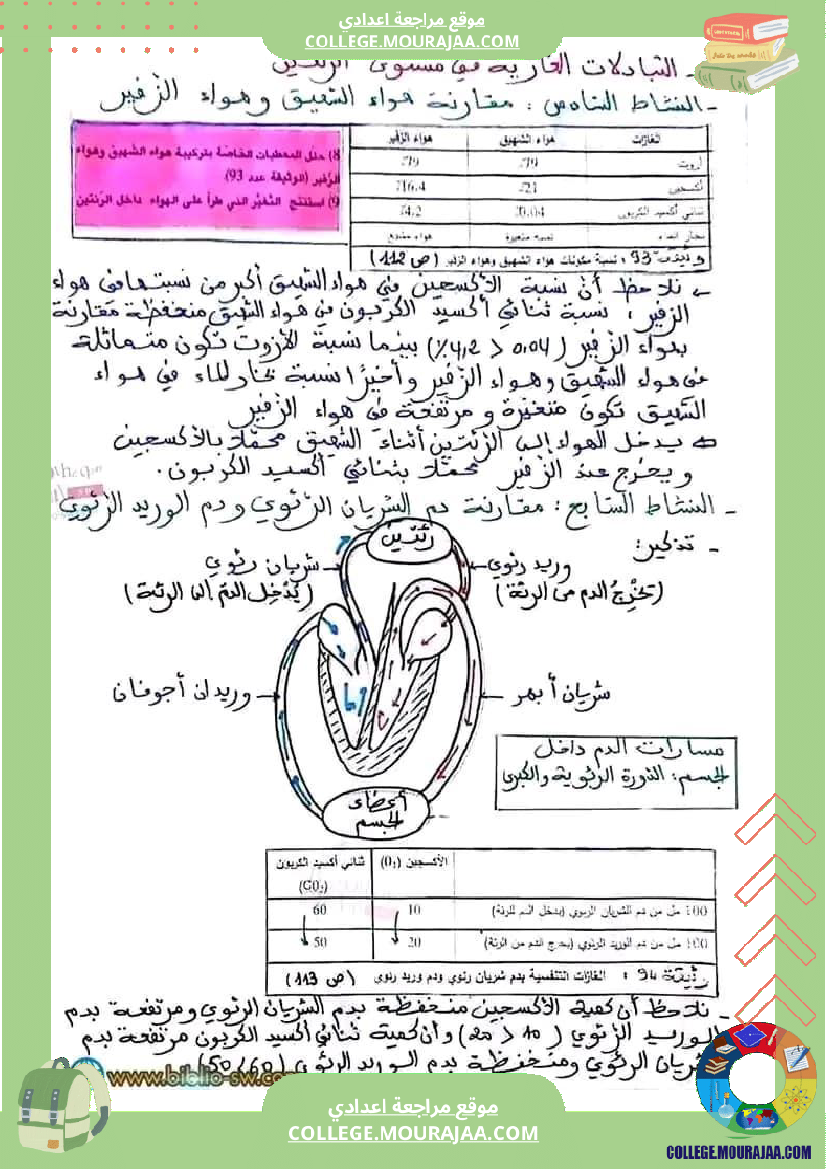 موقع مراجعة اعدادي
COLLEGE.MOURAJAA.COM
- التبادلات الغازية في مستوى الرئتين
- النشاط السادس : مقارنة هواء الشهيق وهواء الزفير
8) حلل المعطيات الخاصة بتركيبة هواء الشهيق وهواء
الزفير (الوثيقة عدد 93)
9) استنتج التغير الذي طرأ على الهواء داخل الرئتين
الغازات هواء الشهيق هواء الزفير
آزوت %79 %79
أكسجين %21 %16.4
ثاني أكسيد الكربون %0.04 %4.2
بخار الماء نسبة متغيرة هواء مشبع
وثيقة 93 : نسبة مكونات هواء الشهيق وهواء الزفير (ص 112)
نلاحظ أن نسبة الأكسجين في هواء الشهيق أكبر من نسبتها في هواء
الزفير ، نسبة ثنائي أكسيد الكربون في هواء الشهيق منخفظة مقارنة
بهواء الزفير (0.04 < 4,2٪) بينما نسبة الأزوت تكون متماثلة
في هواء الشهيق وهواء الزفير وأخيرا نسبة بخار الماء في هواء
الشهيق تكون متغيرة و مرتفعة في هواء الزفير
يدخل الهواء إلى الرئتين أثناء الشهيق محملا بالأكسجين
ويخرج عند الزفير محملا بثنائي أكسيد الكربون.
- النشاط السابع : مقارنة دم الشريان الرئوي ودم الوريد الرئوي
- تذكير:
رئتين
شريان رئوي
(يُدْخِل الدم إلى الرئة)
وريد رئوي
(تخرِجُ الدم من الرئة)
وريدان أجوفان
شريان أبهر
أعضاء
الجسم
مسارات الدم داخل
الجسم: الدورة الرئوية والكبرى
الأكسجين (O₂) ثنائي أكسيد الكربون
(CO₂)
100 مل من دم الشريان الرئوي (يدخل الدم للرئة) 10 60
100 مل من دم الوريد الرئوي (يخرج الدم من الرئة) 20 50
وثيقة 94 : الغازات التنفسية بدم شريان رئوي ودم وريد رئوي (ص 113)
- نلاحظ أن كمية الأكسجين منخفظة بدم الشريان الرئوي ومرتفعة بدم
الوريد الرئوي (10 < 20) وأن كمية ثنائي أكسيد الكربون مرتفعة بدم
شريان الرئوي ومنخفظة بدم الوريد الرئوي (60 / 50)
www.biblio-sw.com
موقع مراجعة اعدادي
COLLEGE.MOURAJAA.COM
COLLEGE.MOURAJAA.COM